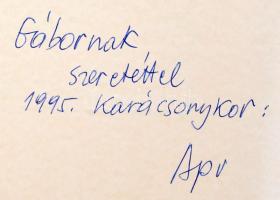 Gábornak
szeretéttel
1995. Karácsonykor:
Apu